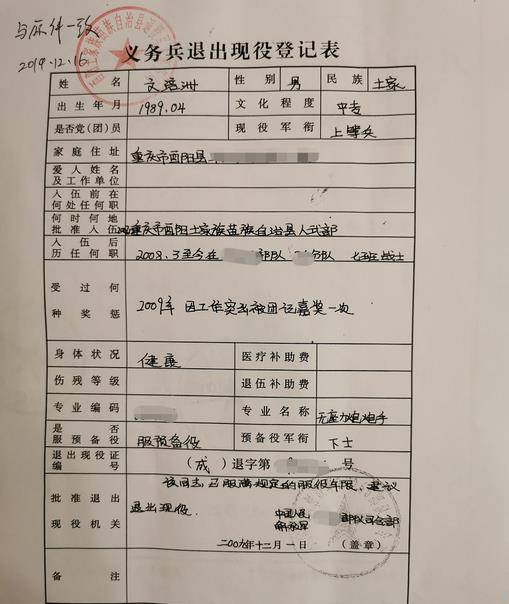 与原件一致
2019.12.16
义务兵退出现役登记表
姓名 性别 男 民族 土家
出生年月 1989.04 文化程度 中专
是否党(团)员 现役军衔 上等兵
家庭住址 重庆市酉阳县
爱人姓名及工作单位
入伍前在何处任何职
何时何地批准入伍 重庆市酉阳土家族苗族自治县人武部
入伍后历任何职 2008.3至今在 部队 分队 七班战士
受过何种奖惩 2009年 因工作突出被团记嘉奖一次
身体状况 健康 医疗补助费
伤残等级 退伍补助费
专业编码 专业名称 无座力炮炮手
是否服预备役 服预备役 预备役军衔 下士
退出现役证编号 (成)退字第 号
批准退出现役机关 该同志,已服满规定的服役年限,建议
退出现役。
中国人民解放军 部队司令部
二00九年十二月一日 (盖章)
备注